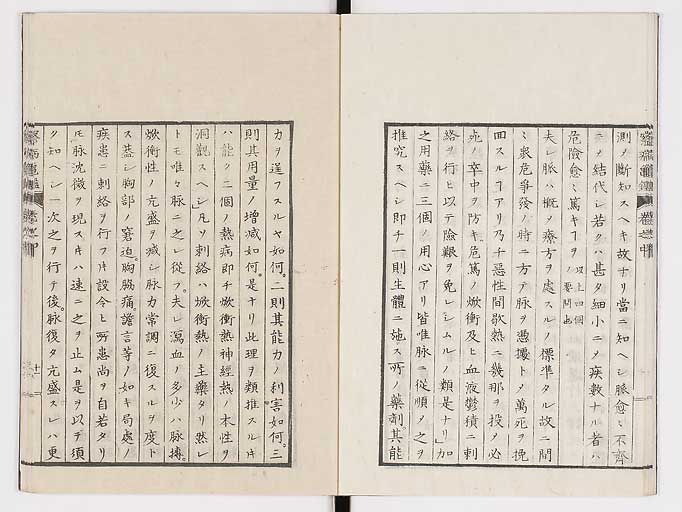 測メ断知スヘキ故ナリ當ニ知ヘシ脈愈〻不齊
ニメ結代シ若クハ甚タ細小ニメ疾數ナル者ハ
危險愈〻篤キヿヲ以上四個ノ要問也
夫レ脈ハ概メ療方ヲ處スルノ標準タル故ニ間
〻衆危爭發ノ時ニ方テ脈ヲ憑據トメ萬死ヲ挽
回スルヿアリ乃チ惡性間歇熱ニ幾那ヲ投メ必
死ノ卒中ヲ防キ危篤ノ焮衝及ヒ血液鬱積ニ刺
絡ヲ行ヒ以テ險艱ヲ免レシムルノ類是ナリ加
之用藥ニ三個ノ用心アリ皆唯脈ニ從順ノ之ヲ
推究スヘシ即チ一則生體ニ施ス所ノ藥劑其能
力ヲ逞フスルヤ如何。二則其能力ノ利害如何。三
則其用量ノ増減如何。是ナリ此理ヲ類推スルキ
ハ能ク二個ノ熱病即チ焮衝熱神經熱ノ本性ヲ
洞觀スヘシ凡ソ刺絡ハ焮衝熱ノ主藥タリ然レ
トモ唯々脈ニ之レ從フ。夫レ瀉血ノ多少ハ脈搏。
焮衝性ノ亢盛ヲ減シ脈力常調ニ復スルヲ度ト
ス蓋シ胸部ノ窘迫。胸脇痛。譫言等ノ如キ局處ノ
疾患ニ刺絡ヲ行フキ設令ヒ所患尚ヲ自若タリ
ヒ脈沈微ヲ現スキハ速ニ之ヲ止ム是ヲ以テ須
ク知ヘシ一次之ヲ行テ後。脈復タ亢盛スレハ更